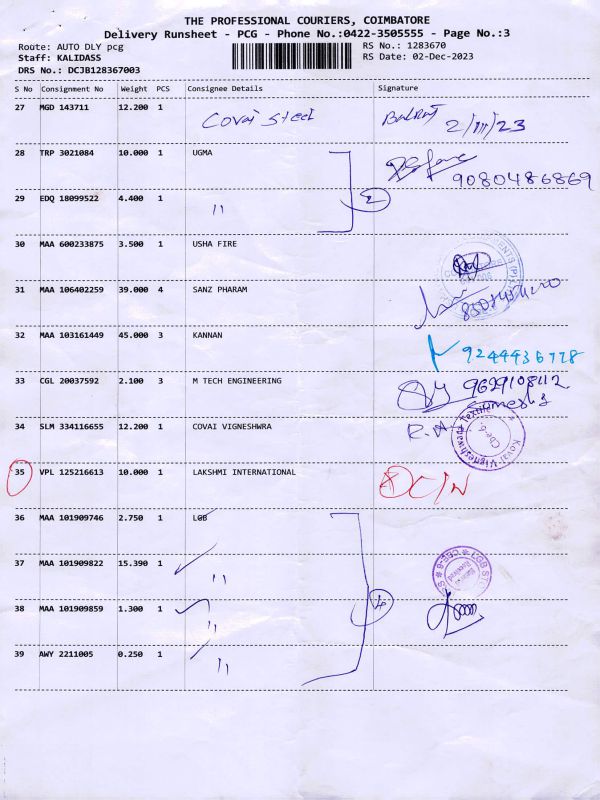 THE PROFESSIONAL COURIERS, COIMBATORE
Delivery Runsheet - PCG - Phone No.:0422-3505555 - Page No.:3
Route: AUTO DLY pcg RS No.: 1283670
Staff: KALIDASS RS Date: 02-Dec-2023
DRS No.: DCJB128367003
S No Consignment No Weight PCS Consignee Details Signature
27 MGD 143711 12.200 1 Covai Steel 2/III/23
28 TRP 3021084 10.000 1 UGMA 9080486869
29 EDQ 18099522 4.400 1 " 2
30 MAA 600233875 3.500 1 USHA FIRE
31 MAA 106402259 39.000 4 SANZ PHARAM
32 MAA 103161449 45.000 3 KANNAN 9244936778
33 CGL 20037592 2.100 3 M TECH ENGINEERING 9629108112
34 SLM 334116655 12.200 1 COVAI VIGNESHWRA
35 VPL 125216613 10.000 1 LAKSHMI INTERNATIONAL C/N
36 MAA 101909746 2.750 1 LGB
37 MAA 101909822 15.390 1 "
38 MAA 101909859 1.300 1 " 4
39 AWY 2211005 0.250 1 "